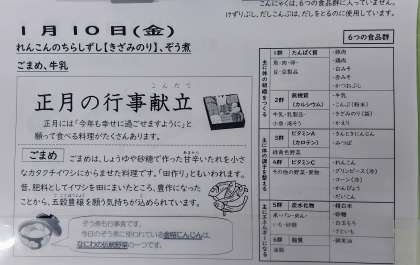 こんにゃくは、6つの食品群に入っていません。
けずりぶし、だしこんぶは、だしをとるのに使用しています。
1月10日(金)
れんこんのちらしずし【きざみのり】、ぞう煮
ごまめ、牛乳
こんだて
正月の行事献立
正月には「今年も幸せに過ごせますように」と
願って食べる料理がたくさんあります。
ごまめ
ごまめは、しょうゆや砂糖で作った甘辛いたれを小さ
なカタクチイワシにからませた料理です。「田作り」ともいわれます。
昔、肥料としてイワシを田にまいたところ、豊作になった
ことから、五穀豊穣を願う気持ちが込められています。
ぞう煮も行事食です。
今日のぞう煮に使われている金時にんじんは、
なにわの伝統野菜の一つです。
6つの食品群
主に体の組織をつくる
1群 たんぱく質
魚・肉・卵・
豆・豆製品
・豚肉
・鶏肉
・白みそ
・赤みそ
2群 無機質
(カルシウム)
牛乳・乳製品・
小魚・海そう
・牛乳
・こんぶ(粉末)
・きざみのり(袋)
・かえり
3群 ビタミンA
(カロテン)
緑黄色野菜
・きんときにんじん
・みつば
4群 ビタミンC
その他の野菜・果物
・れんこん
・グリンピース(冷)
・コーン(冷)
・かんぴょう
・だいこん
5群 炭水化物
米・パン・めん・
いも・砂糖
・精白米
・砂糖
・白玉もち
・さといも
6群 脂質
油脂
・綿実油